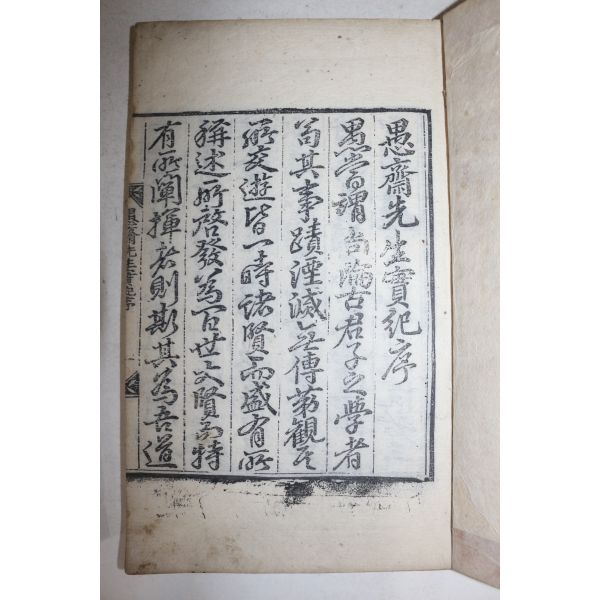 愚齋先生實紀序
愚嘗謂尚論古君子之學者
苟其事蹟湮滅無傳第觀其
所交遊皆一時諸賢而盛有所
稱述所啓發為百世之賢而特
有所闡揮者則斯其為吾道
愚齋先生實紀序